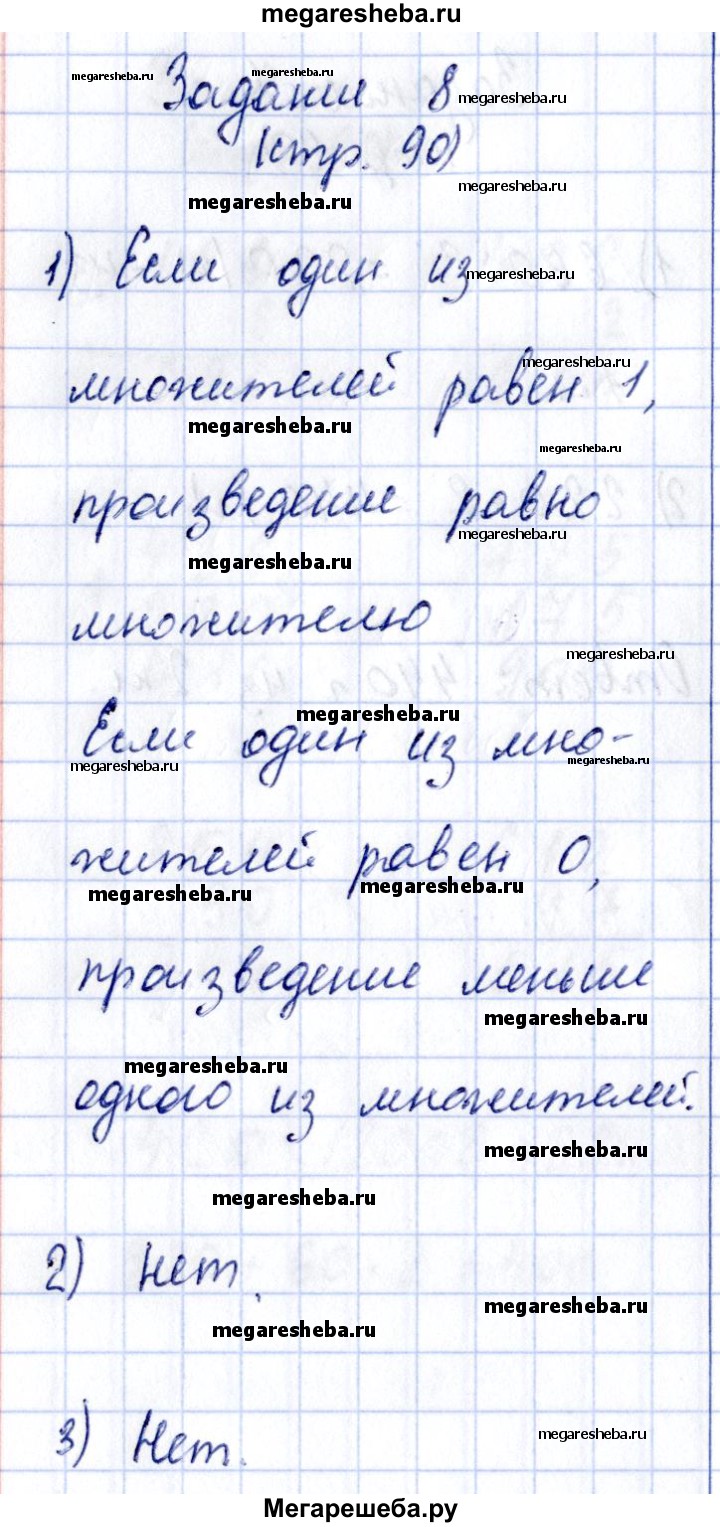 megaresheba.ru
Задание 8
megaresheba.ru megaresheba.ru megaresheba.ru
(стр. 90)
megaresheba.ru megaresheba.ru
1) Если один из
megaresheba.ru
множителей равен 1,
megaresheba.ru
megaresheba.ru megaresheba.ru
произведение равно
megaresheba.ru
megaresheba.ru
множителю
megaresheba.ru
megaresheba.ru
Если один из мно-
megaresheba.ru megaresheba.ru
жителей равен 0,
megaresheba.ru megaresheba.ru
произведение меньше
megaresheba.ru
megaresheba.ru
одного из множителей.
megaresheba.ru
megaresheba.ru
2) Нет.
megaresheba.ru
megaresheba.ru
3) Нет.
megaresheba.ru
Мегарешеба.ру